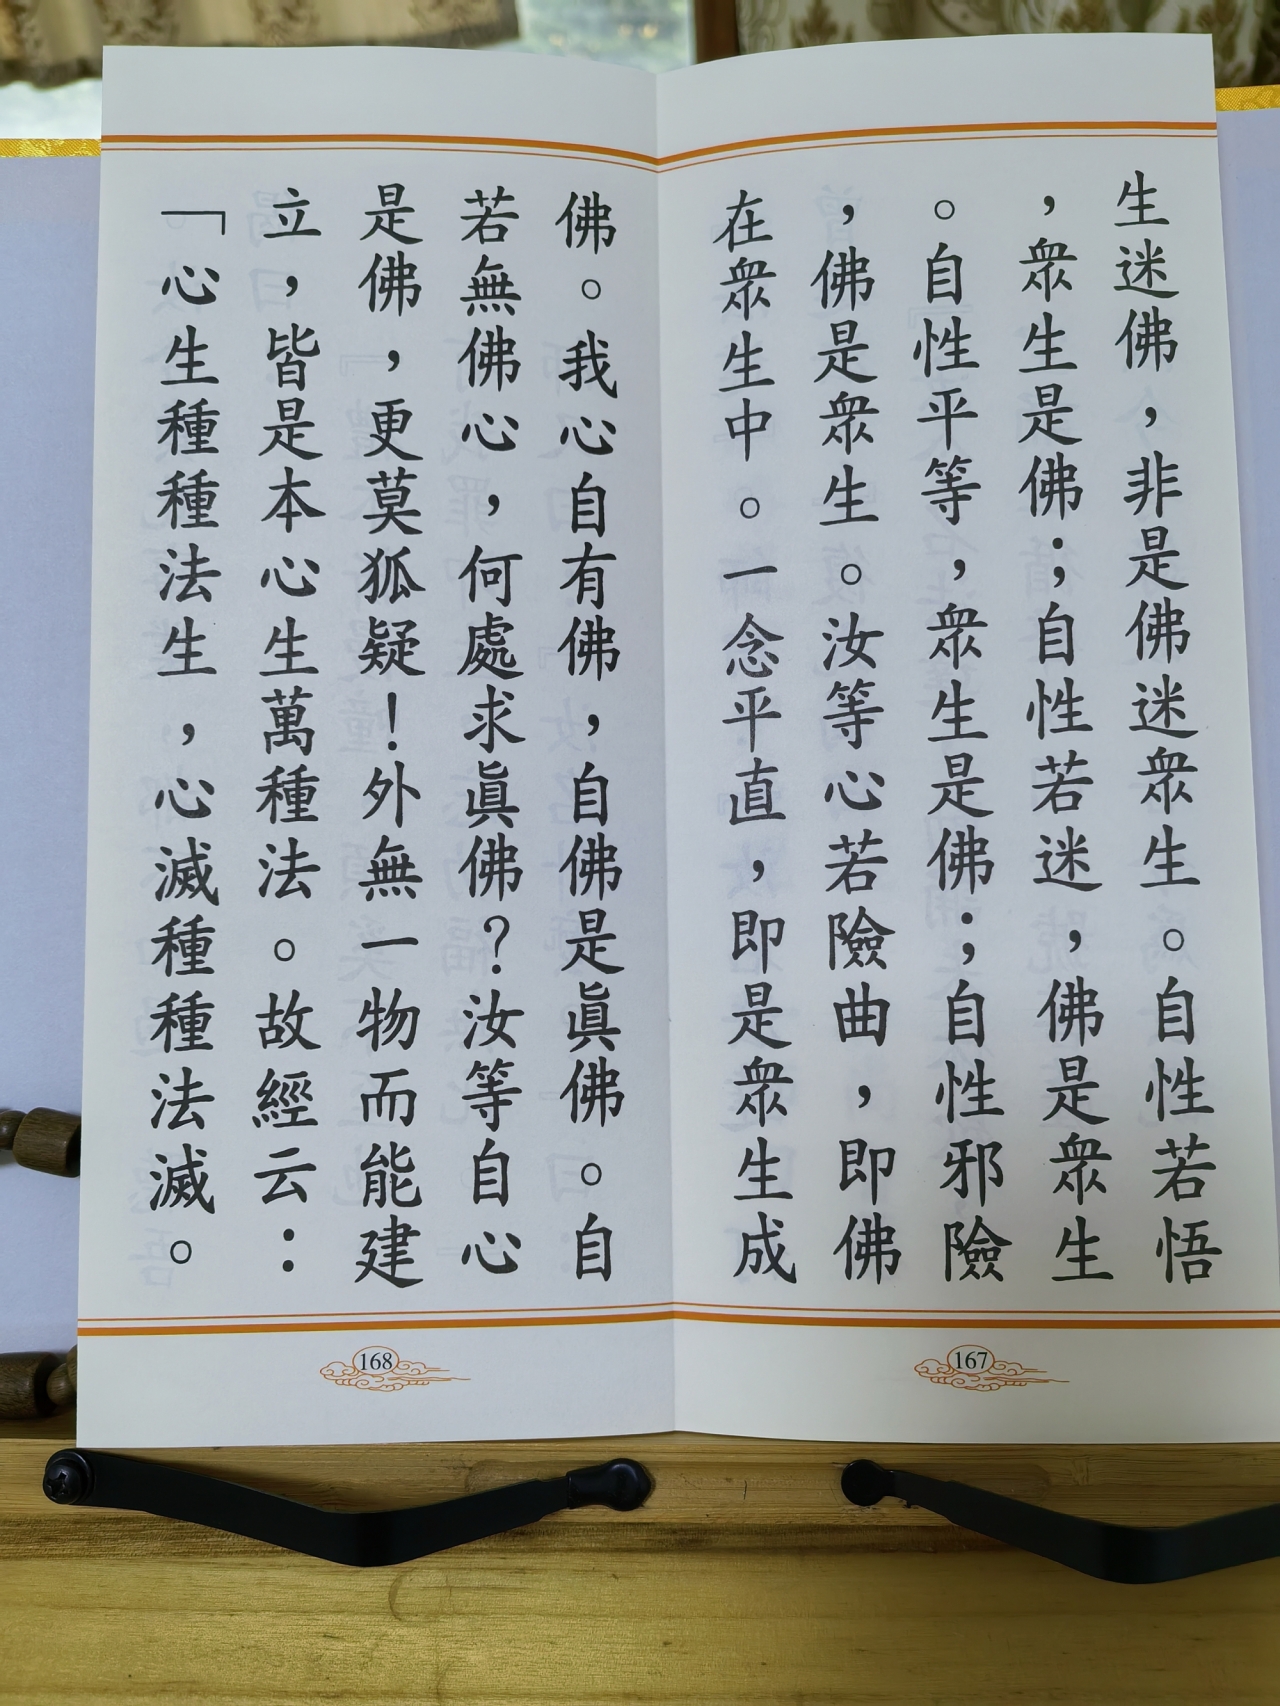 生迷佛，非是佛迷眾生。自性若悟
，眾生是佛；自性若迷，佛是眾生
。自性平等，眾生是佛；自性邪險
，佛是眾生。汝等心若險曲，即佛
在眾生中。一念平直，即是眾生成
167
佛。我心自有佛，自佛是眞佛。自
若無佛心，何處求眞佛？汝等自心
是佛，更莫狐疑！外無一物而能建
立，皆是本心生萬種法。故經云：
「心生種種法生，心滅種種法滅。
168